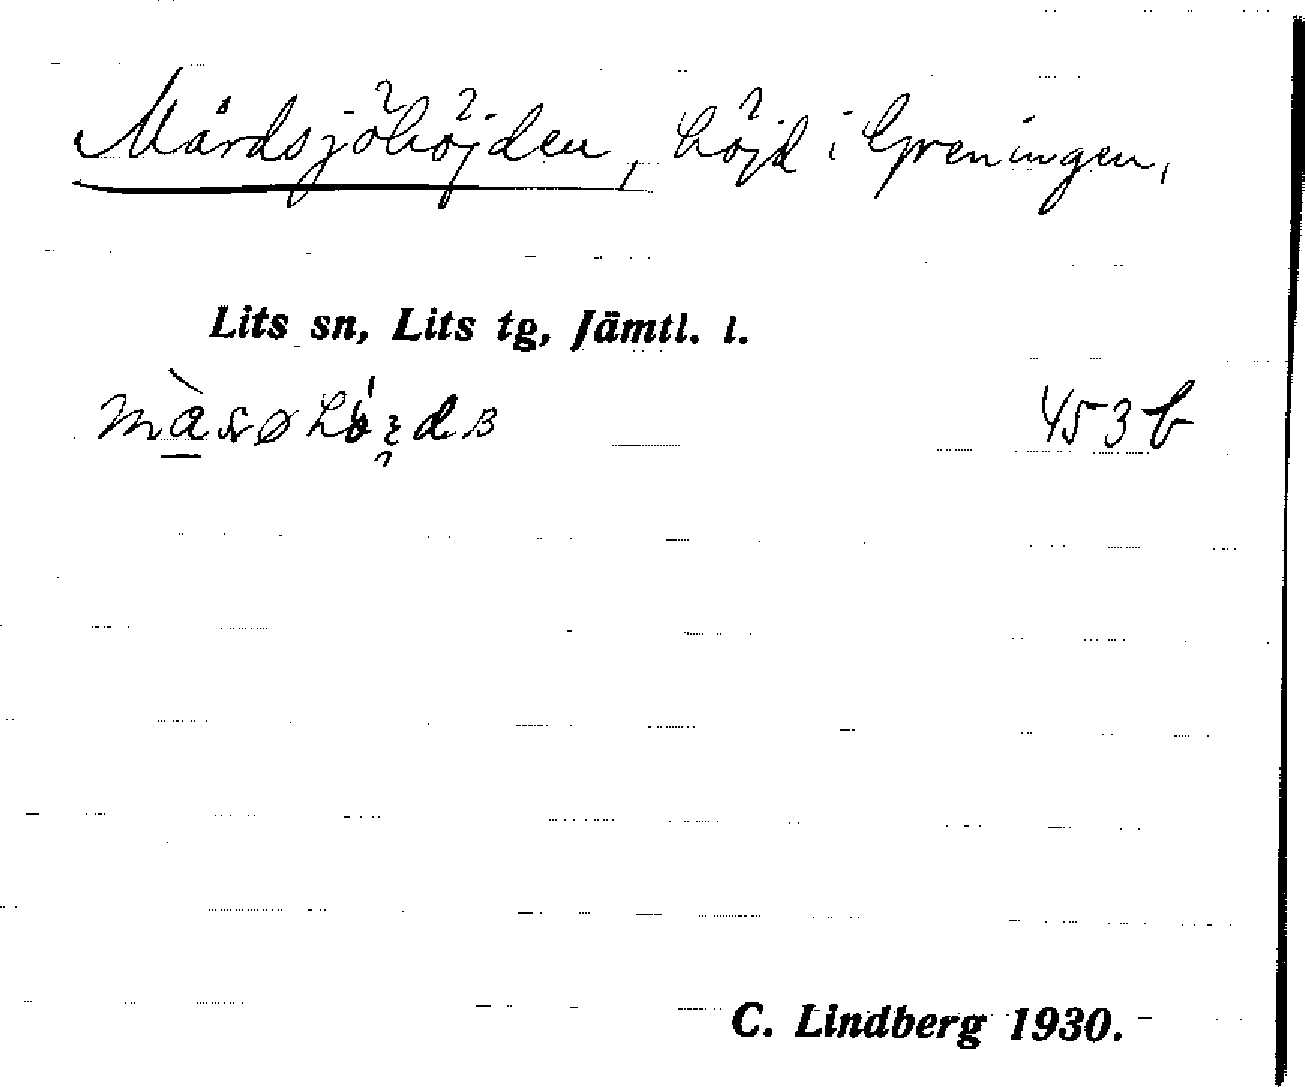 Mårdsjöhöjden, höjd i Greningen,
Lits sn, Lits tg, Jämtl. l.
453 b
C. Lindberg 1930.